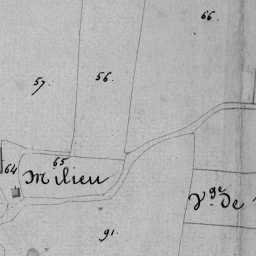 66.
57.
56.
64
65
Milieu
V.ge de
91.